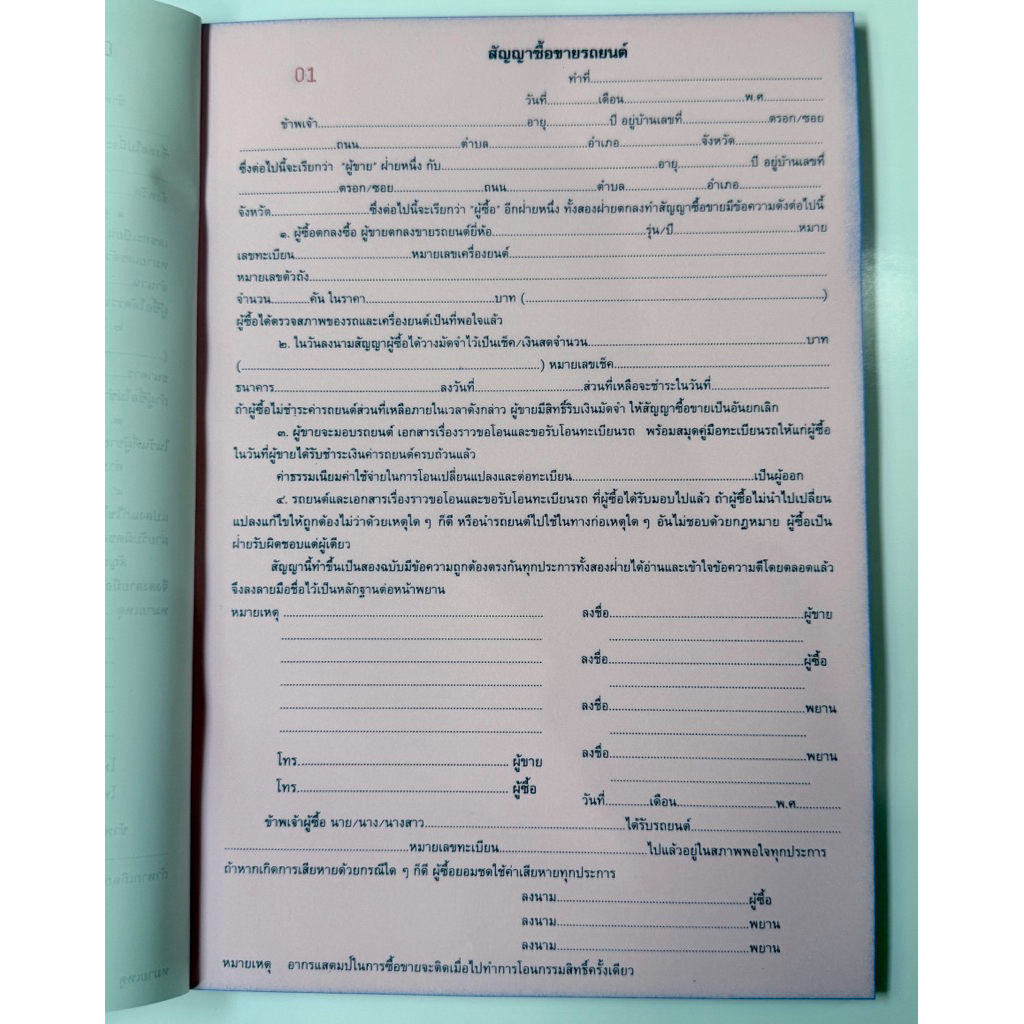 สัญญาซื้อขายรถยนต์
01
ทำที่..............................
วันที่...............เดือน..............................พ.ศ................
ข้าพเจ้า..............................อายุ...............ปี อยู่บ้านเลขที่....................ตรอก/ซอย
....................ถนน....................ตำบล....................อำเภอ....................จังหวัด....................
ซึ่งต่อไปนี้จะเรียกว่า "ผู้ขาย" ฝ่ายหนึ่ง กับ..............................อายุ....................ปี อยู่บ้านเลขที่
....................ตรอก/ซอย....................ถนน....................ตำบล....................อำเภอ....................
จังหวัด....................ซึ่งต่อไปนี้จะเรียกว่า "ผู้ซื้อ" อีกฝ่ายหนึ่ง ทั้งสองฝ่ายตกลงทำสัญญาซื้อขายมีข้อความดังต่อไปนี้
๑. ผู้ซื้อตกลงซื้อ ผู้ขายตกลงขายรถยนต์ยี่ห้อ..............................รุ่น/ปี..............................หมาย
เลขทะเบียน....................หมายเลขเครื่องยนต์..............................
หมายเลขตัวถัง..............................
จำนวน..........คัน ในราคา..............................บาท (..............................)
ผู้ซื้อได้ตรวจสภาพของรถและเครื่องยนต์เป็นที่พอใจแล้ว
๒. ในวันลงนามสัญญาผู้ซื้อได้วางมัดจำไว้เป็นเช็ค/เงินสดจำนวน..............................บาท
(..............................) หมายเลขเช็ค..............................
ธนาคาร..............................ลงวันที่....................ส่วนที่เหลือจะชำระในวันที่....................
ถ้าผู้ซื้อไม่ชำระค่ารถยนต์ส่วนที่เหลือภายในเวลาดังกล่าว ผู้ขายมีสิทธิ์ริบเงินมัดจำ ให้สัญญาซื้อขายเป็นอันยกเลิก
๓. ผู้ขายจะมอบรถยนต์ เอกสารเรื่องราวขอโอนและขอรับโอนทะเบียนรถ พร้อมสมุดคู่มือทะเบียนรถให้แก่ผู้ซื้อ
ในวันที่ผู้ขายได้รับชำระเงินค่ารถยนต์ครบถ้วนแล้ว
ค่าธรรมเนียมค่าใช้จ่ายในการโอนเปลี่ยนแปลงและต่อทะเบียน..............................เป็นผู้ออก
๔. รถยนต์และเอกสารเรื่องราวขอโอนและขอรับโอนทะเบียนรถ ที่ผู้ซื้อได้รับมอบไปแล้ว ถ้าผู้ซื้อไม่นำไปเปลี่ยน
แปลงแก้ไขให้ถูกต้องไม่ว่าด้วยเหตุใด ๆ ก็ดี หรือนำรถยนต์ไปใช้ในทางก่อเหตุใด ๆ อันไม่ชอบด้วยกฎหมาย ผู้ซื้อเป็น
ฝ่ายรับผิดชอบแต่ผู้เดียว
สัญญานี้ทำขึ้นเป็นสองฉบับมีข้อความถูกต้องตรงกันทุกประการทั้งสองฝ่ายได้อ่านและเข้าใจข้อความดีโดยตลอดแล้ว
จึงลงลายมือชื่อไว้เป็นหลักฐานต่อหน้าพยาน
หมายเหตุ ..............................
ลงชื่อ..............................ผู้ขาย
ลงชื่อ..............................ผู้ซื้อ
ลงชื่อ..............................พยาน
ลงชื่อ..............................พยาน
โทร.............................. ผู้ขาย
โทร.............................. ผู้ซื้อ
วันที่..........เดือน....................พ.ศ..........
ข้าพเจ้าผู้ซื้อ นาย/นาง/นางสาว..............................ได้รับรถยนต์..............................
..............................หมายเลขทะเบียน..............................ไปแล้วอยู่ในสภาพพอใจทุกประการ
ถ้าหากเกิดการเสียหายด้วยกรณีใด ๆ ก็ดี ผู้ซื้อยอมชดใช้ค่าเสียหายทุกประการ
ลงนาม..............................ผู้ซื้อ
ลงนาม..............................พยาน
ลงนาม..............................พยาน
หมายเหตุ อากรแสตมป์ในการซื้อขายจะติดเมื่อไปทำการโอนกรรมสิทธิ์ครั้งเดียว